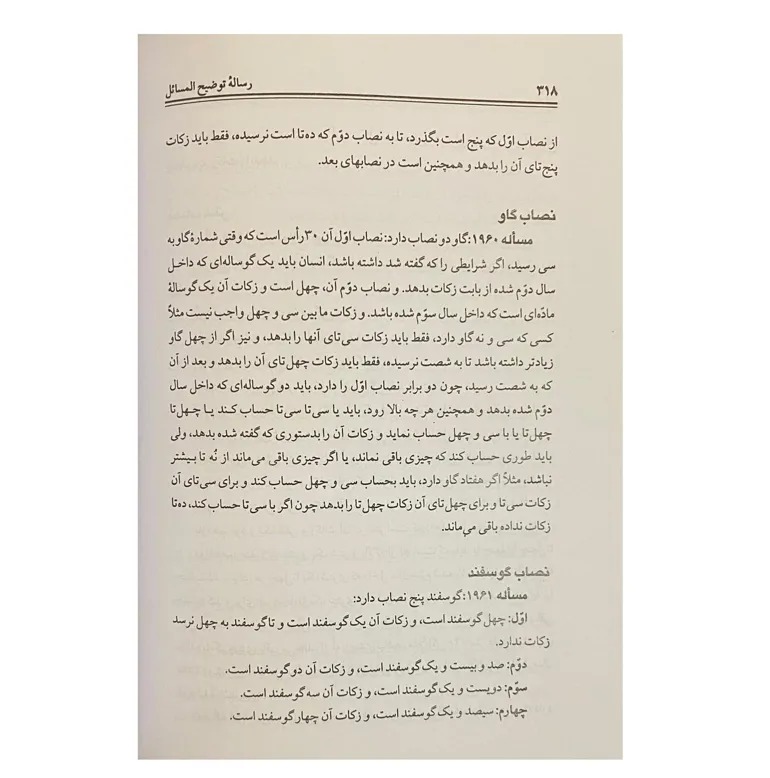 ۳۱۸
رسالهٔ توضیح المسائل
از نصاب اوّل که پنج است بگذرد، تا به نصاب دوّم که ده‌تا است نرسیده، فقط باید زکات
پنج‌تای آن را بدهد و همچنین است در نصابهای بعد.
نصاب گاو
مسأله ۱۹۶۰: گاو دو نصاب دارد: نصاب اوّل آن ۳۰ رأس است که وقتی شمارهٔ گاو به
سی رسید، اگر شرایطی را که گفته شد داشته باشد، انسان باید یک گوساله‌ای که داخل
سال دوّم شده از بابت زکات بدهد. و نصاب دوّم آن، چهل است و زکات آن یک گوسالهٔ
مادّه‌ای است که داخل سال سوّم شده باشد. و زکات ما بین سی و چهل واجب نیست مثلاً
کسی که سی و نه گاو دارد، فقط باید زکات سی‌تای آنها را بدهد، و نیز اگر از چهل گاو
زیادتر داشته باشد تا به شصت نرسیده، فقط باید زکات چهل‌تای آن را بدهد و بعد از آن
که به شصت رسید، چون دو برابر نصاب اوّل را دارد، باید دو گوساله‌ای که داخل سال
دوّم شده بدهد و همچنین هر چه بالا رود، باید یا سی‌تا سی‌تا حساب کند یا چهل‌تا
چهل‌تا یا با سی و چهل حساب نماید و زکات آن را بدستوری که گفته شده بدهد، ولی
باید طوری حساب کند که چیزی باقی نماند، یا اگر چیزی باقی می‌ماند از نُه تا بیشتر
نباشد، مثلاً اگر هفتاد گاو دارد، باید بحساب سی و چهل حساب کند و برای سی‌تای آن
زکات سی‌تا و برای چهل‌تای آن زکات چهل‌تا را بدهد چون اگر با سی‌تا حساب کند، ده‌تا
زکات نداده باقی می‌ماند.
نصاب گوسفند
مسأله ۱۹۶۱: گوسفند پنج نصاب دارد:
اوّل: چهل گوسفند است، و زکات آن یک گوسفند است و تا گوسفند به چهل نرسد
زکات ندارد.
دوّم: صد و بیست و یک گوسفند است، و زکات آن دو گوسفند است.
سوّم: دویست و یک گوسفند است، و زکات آن سه گوسفند است.
چهارم: سیصد و یک گوسفند است، و زکات آن چهار گوسفند است.